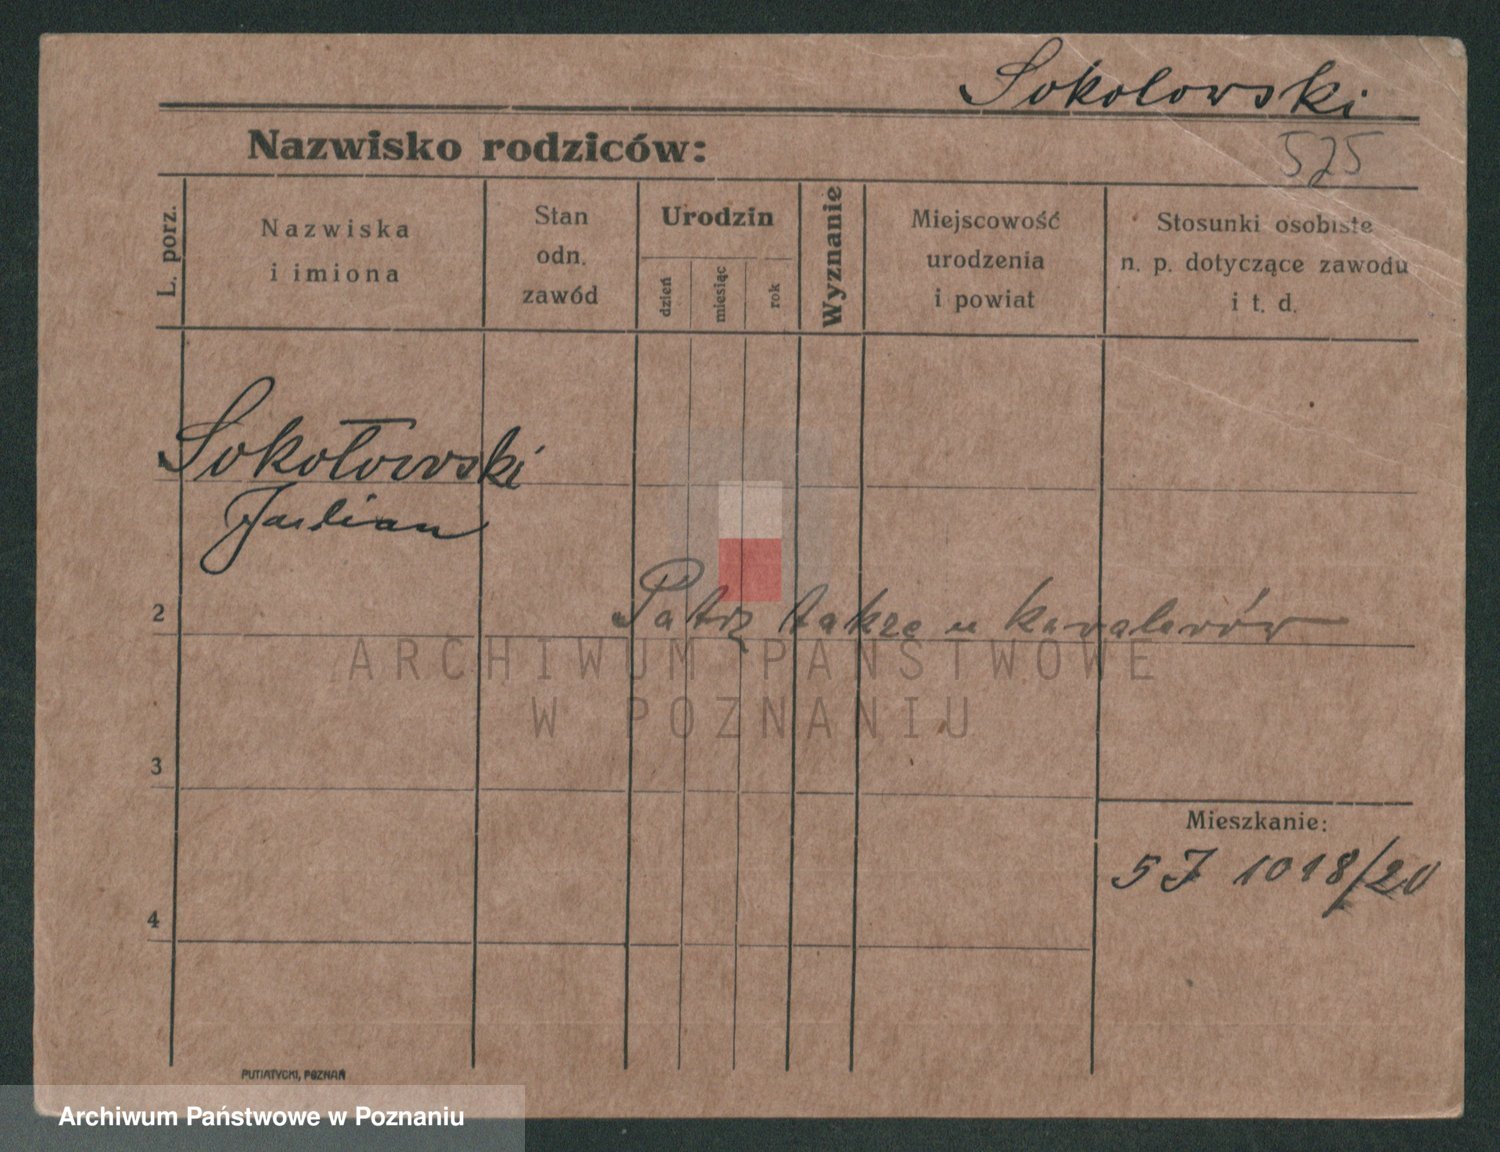 Sokolowski
Nazwisko rodziców:
575
L. porz.
Nazwiska
i imiona
Stan
odn.
zawód
Urodzin
dzień
miesiąc
rok
Wyznanie
Miejscowość
urodzenia
i powiat
Stosunki osobiste
n. p. dotyczące zawodu
i t. d.
Sokołowski
Julian
2
Patrz także u kawalerów
ARCHIWUM PAŃSTWOWE
W POZNANIU
3
Mieszkanie:
5 J 1018/20
4
PUTIATYCKI, POZNAŃ
Archiwum Państwowe w Poznaniu